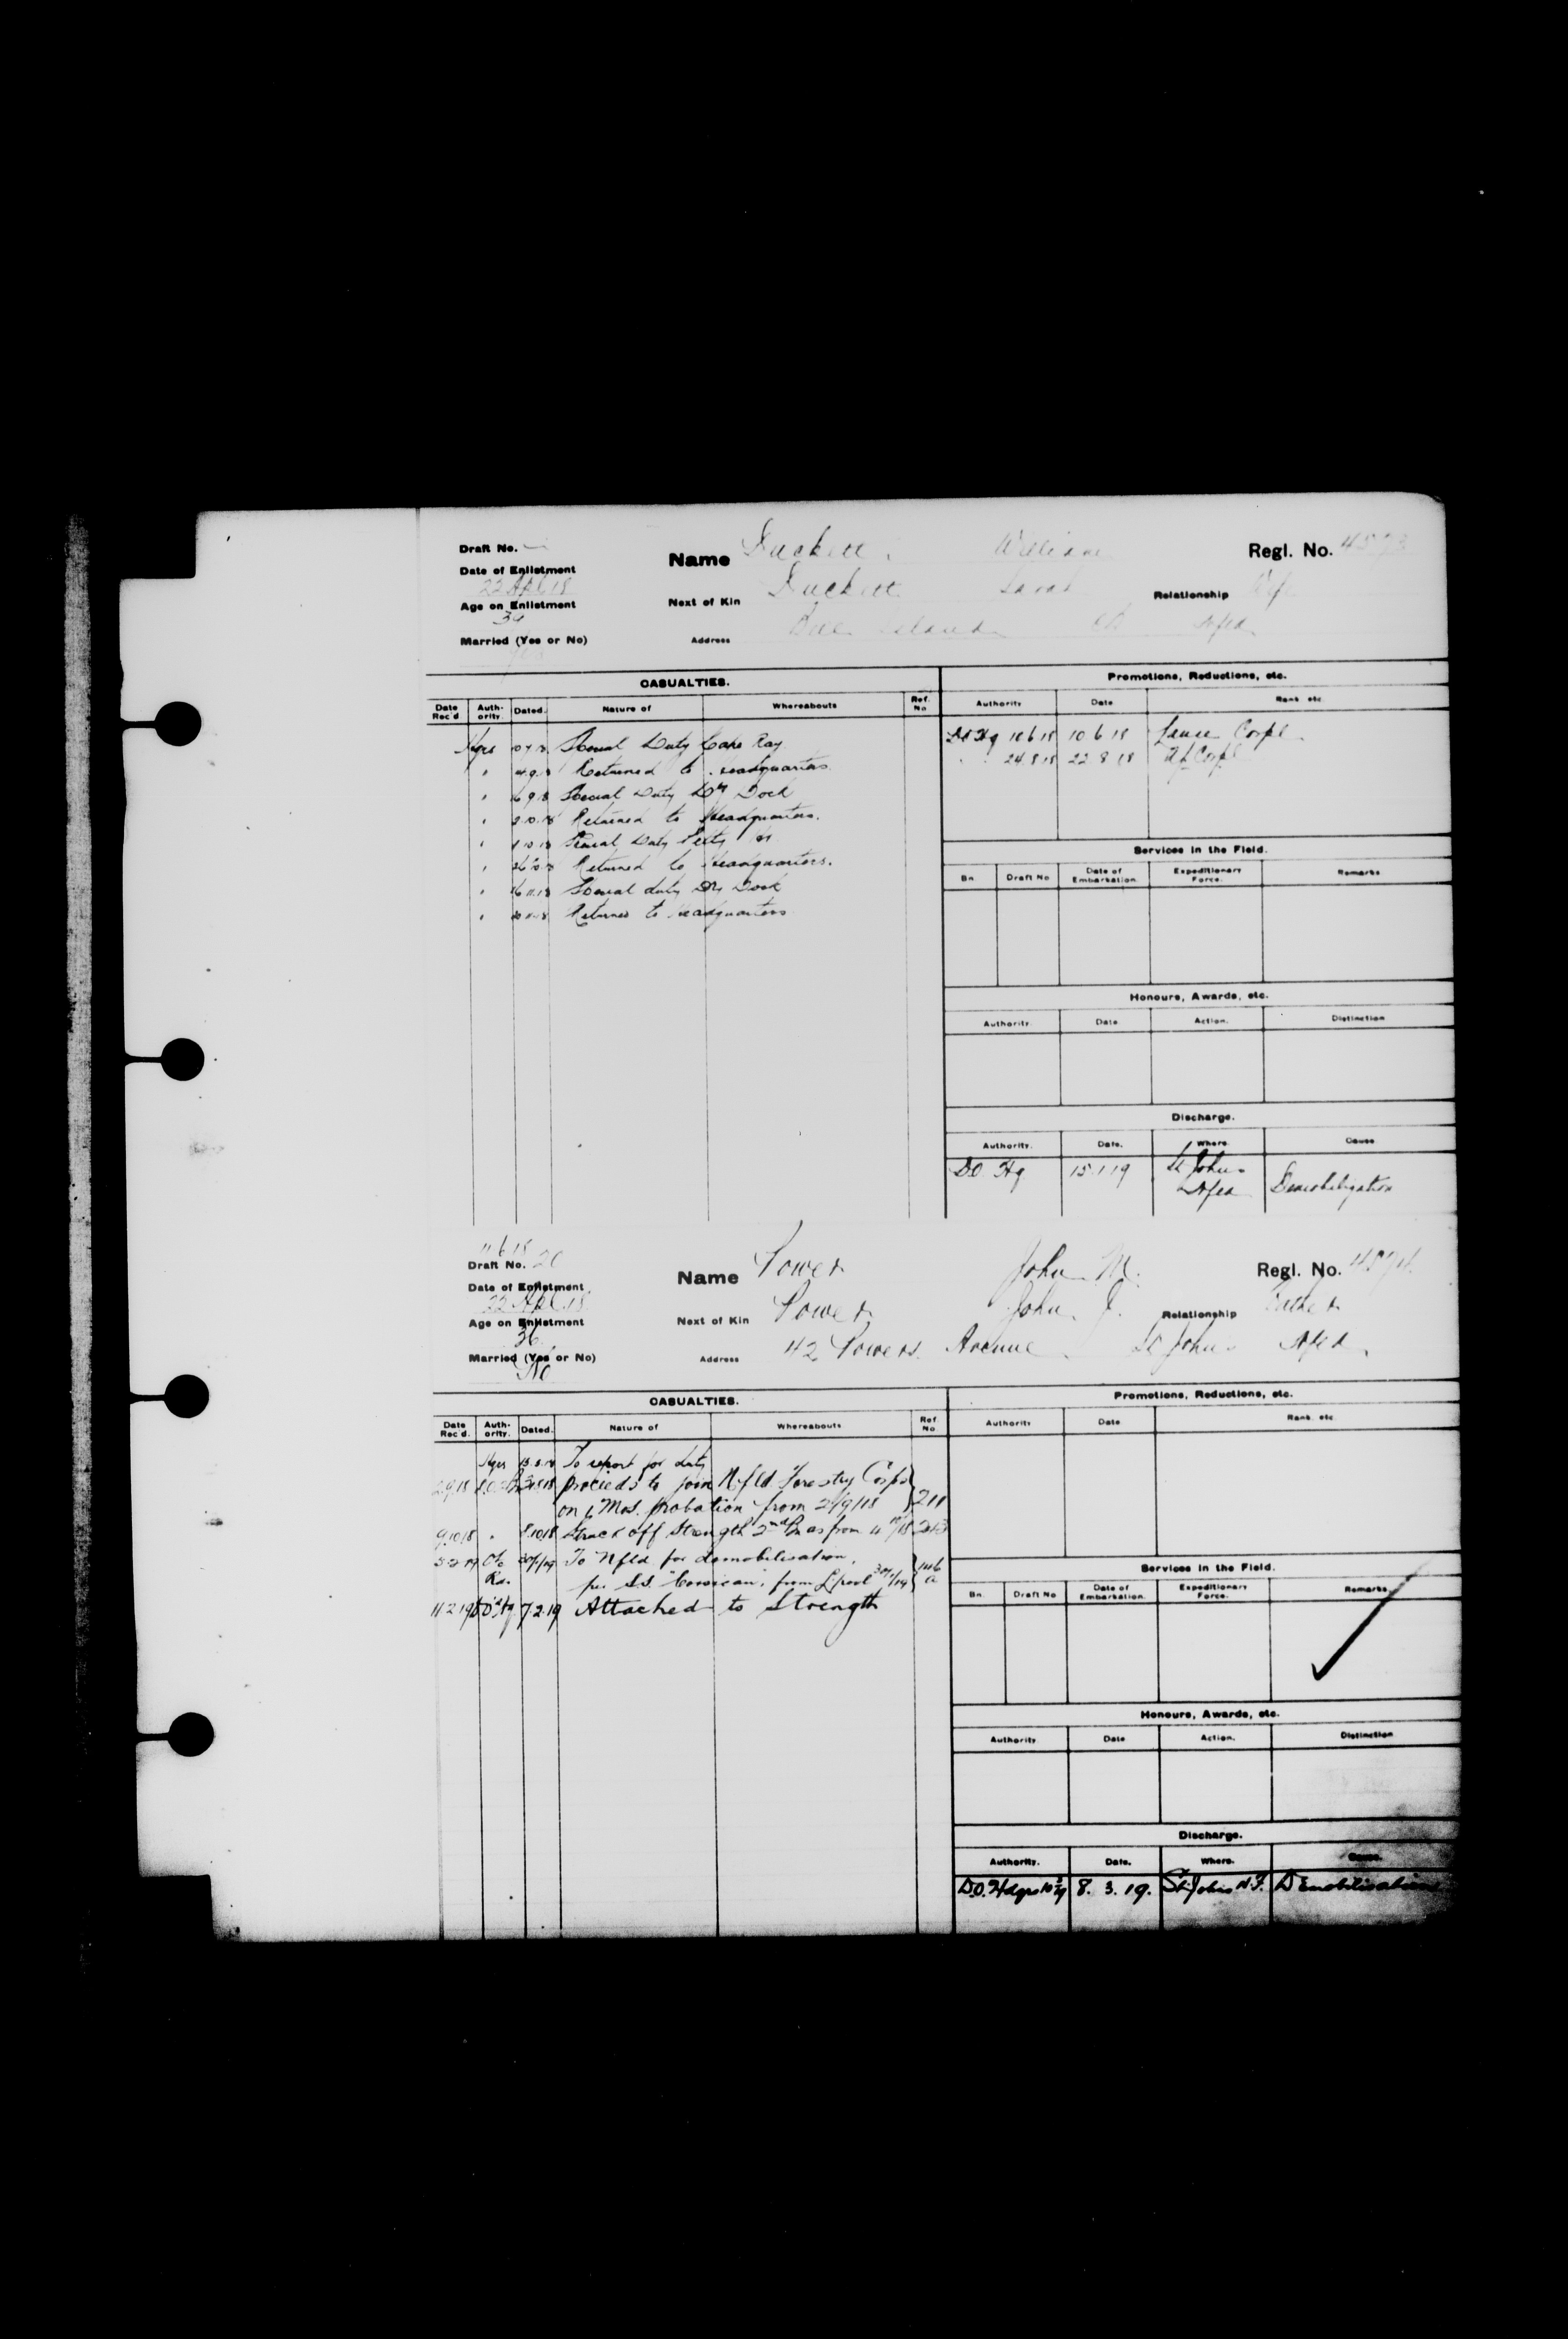 Draft No.
Date of Enlistment
22 Apl 18
Age on Enlistment
34
Married (Yes or No)
Yes
Name Duckett, William Regl. No. 4573
Next of Kin Duckett Sarah Relationship Wife
Address Bell Island CB Nfld
CASUALTIES.
Date Rec'd Auth-ority. Dated. Nature of Whereabouts Ref. No
Hqrs Special Duty Cape Ray
" 4.9.18 Returned to Headquarters
" 6 9 18 Special Duty Dry Dock
" 2.10.18 Returned to Headquarters.
" 8 10 18 Special Duty Petty Hr
" 26 10 18 Returned to Headquarters.
" 16 11.18 Special duty Dry Dock
" 20 11.18 Returned to Headquarters
Promotions, Reductions, etc.
Authority Date Rank etc
DO Hq 10 6 18 10 6 18 Lance Corpl.
" " 24.8 18 22 8 18 A/Corpl
Services in the Field.
Bn. Draft No Date of Embarkation. Expeditionary Force. Remarks
Honours, Awards, etc.
Authority. Date Action. Distinction
Discharge.
Authority. Date. Where. Cause
DO Hq 15.1.19 St Johns Nfld Demobilization
11 6 18
Draft No. 20
Date of Enlistment
22 Apl 18
Age on Enlistment
36
Married (Yes or No)
No
Name Power John M. Regl. No. 4574
Next of Kin Power John J. Relationship Father
Address 42 Powers Avenue St Johns Nfld.
CASUALTIES.
Date Rec'd. Auth-ority. Dated. Nature of Whereabouts Ref. No
Hqrs To report for duty
2.9.18 31.8.18 Proceeds to join Nfld Forestry Corps
on 6 Mos. probation from 2/9/18 211
9.10.18 " 8.10.18 Struck off Strength 2nd Bn as from 213
5-2-19 30/1/19 To Nfld for demobilisation,
per S.S. "Corsican", from L'pool 30/1/19
11 2 19 DO Hq 7.2.19 Attached to Strength
Promotions, Reductions, etc.
Authority Date Rank. etc
Services in the Field.
Bn. Draft No Date of Embarkation. Expeditionary Force. Remarks.
Honours, Awards, etc.
Authority. Date Action. Distinction
Discharge.
Authority. Date. Where. Cause.
D.O. Hdqrs 8. 3. 19. St. Johns N.F. Demobilisation